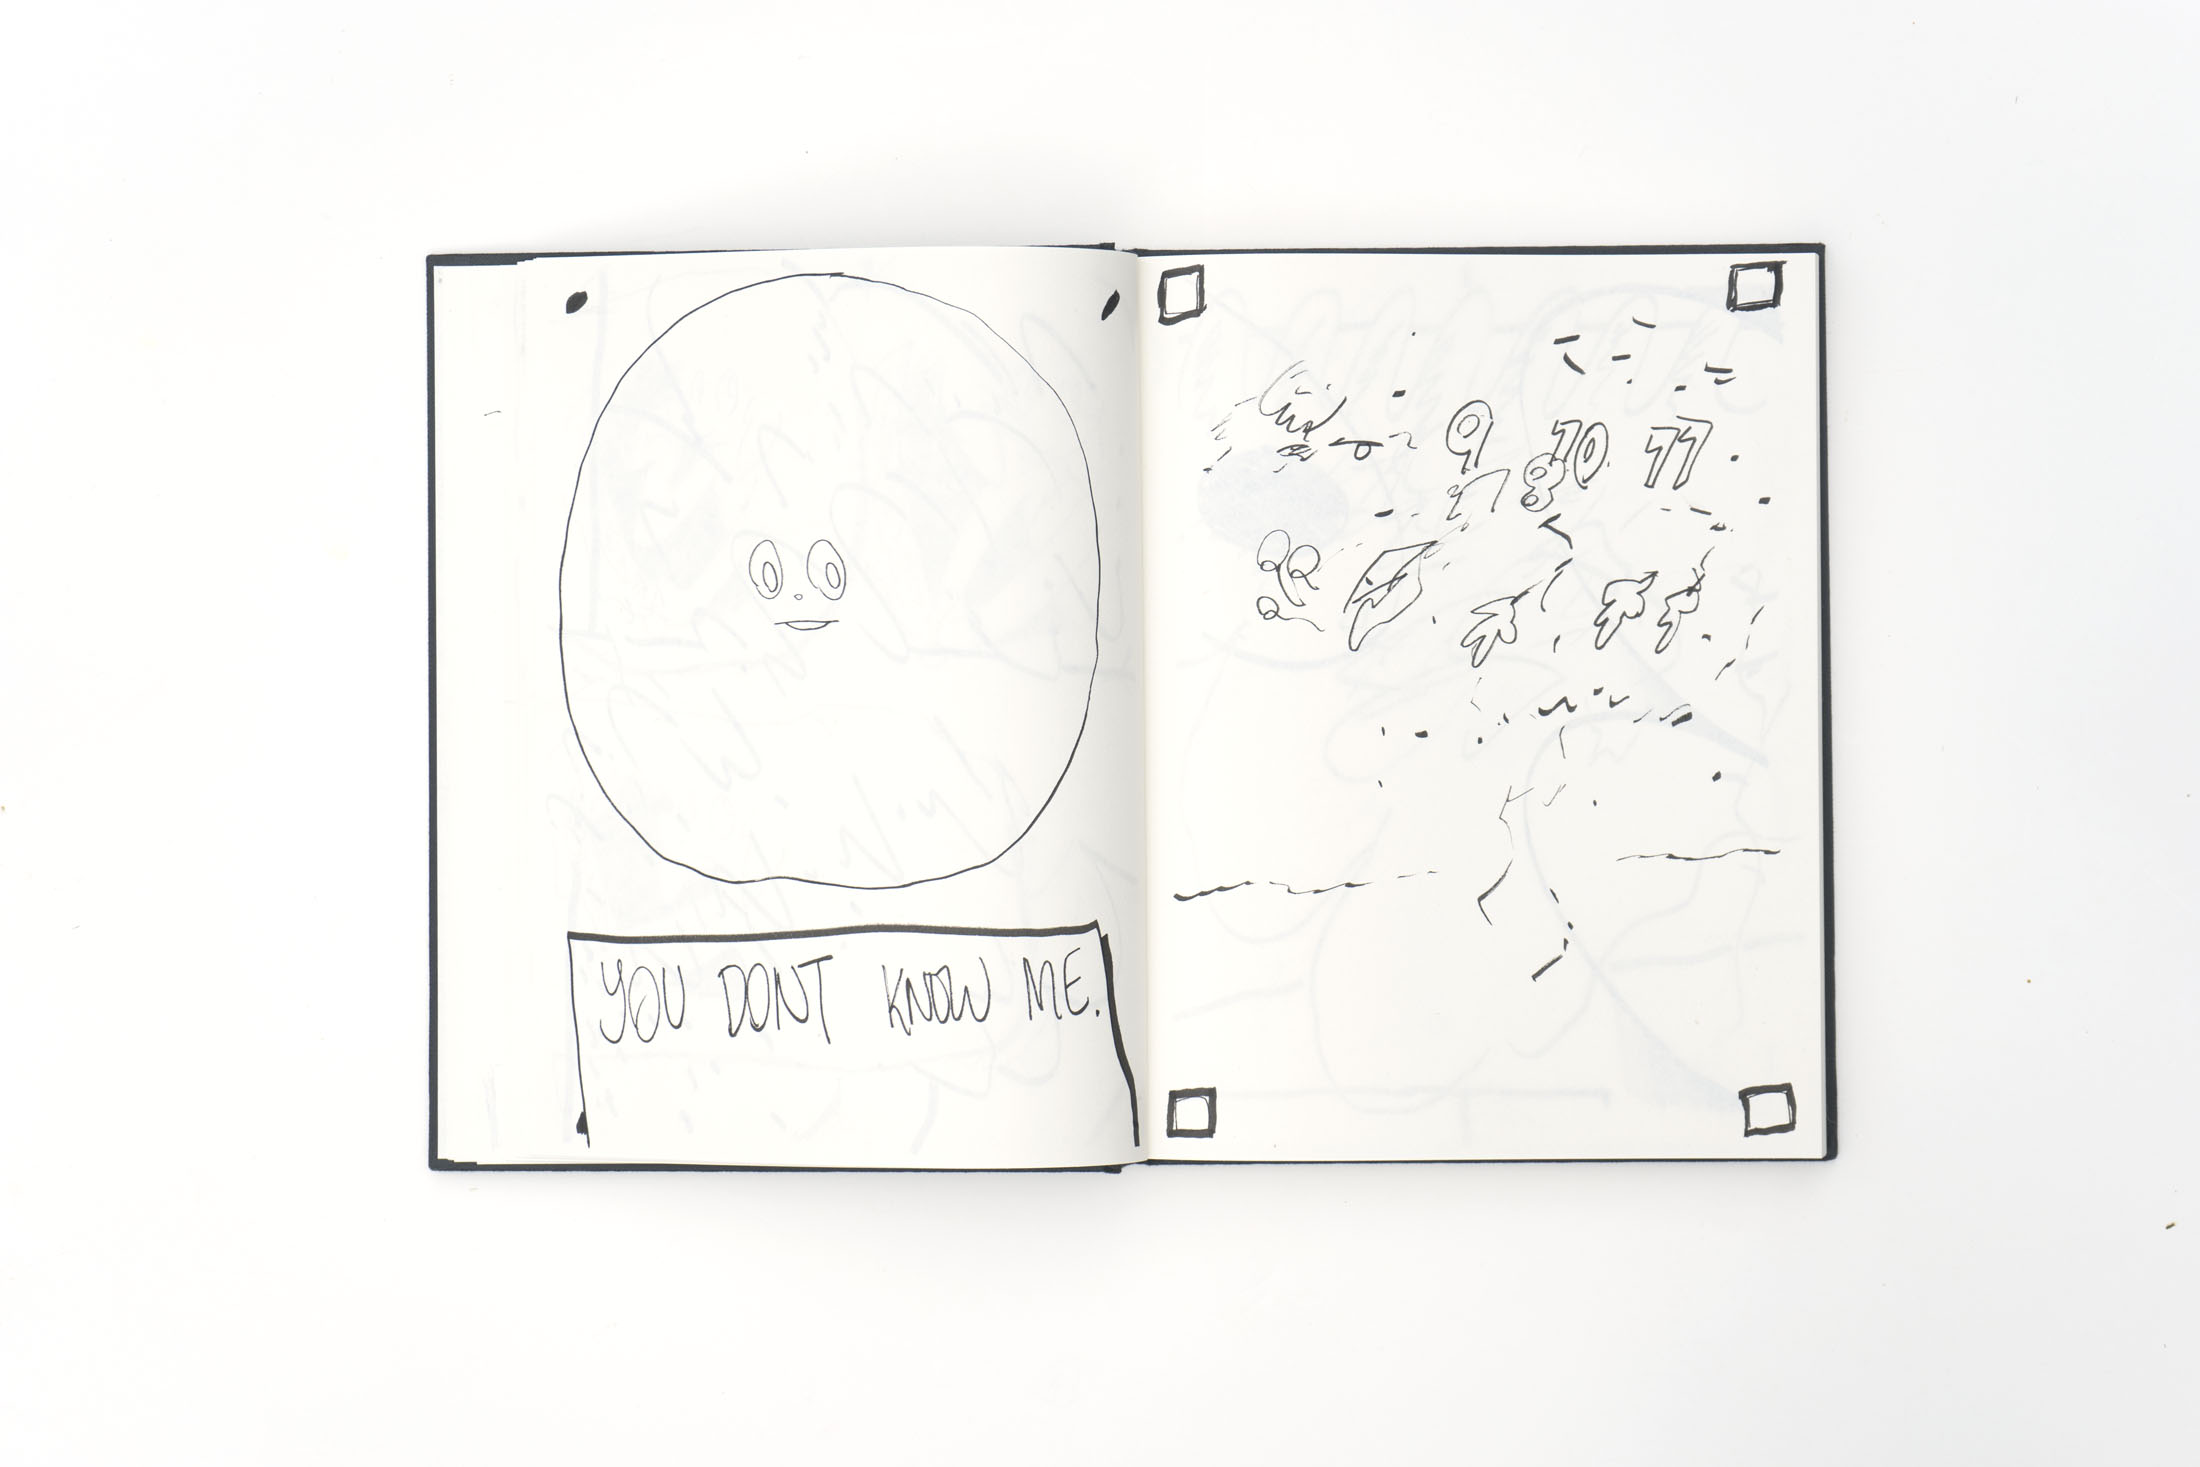 YOU DONT KNOW ME.
9 70 77
8